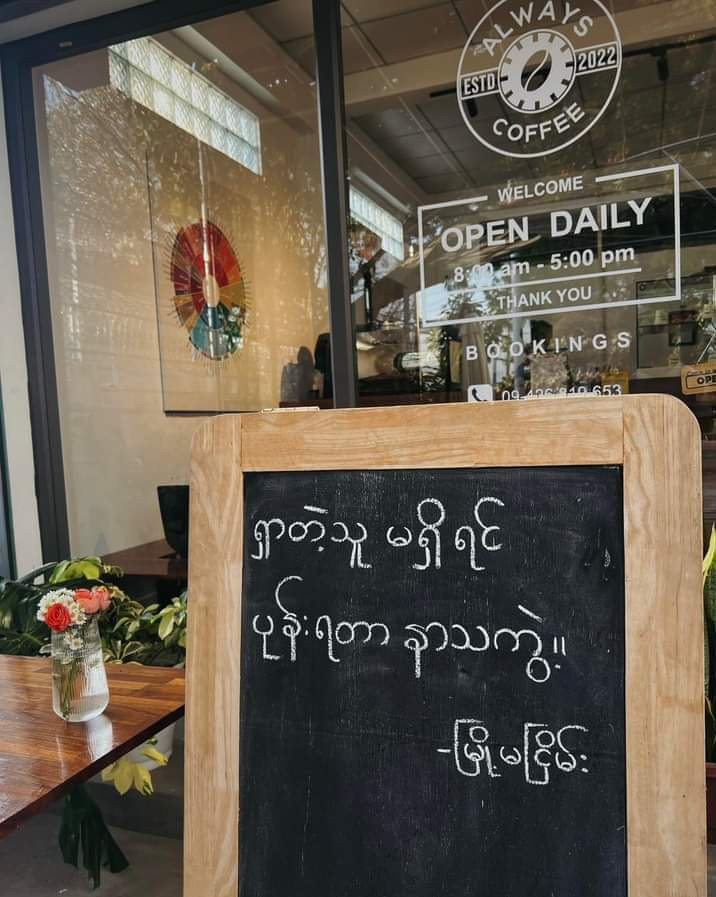 ALWAYS
ESTD 2022
COFFEE
WELCOME
OPEN DAILY
8:00 am - 5:00 pm
THANK YOU
BOOKINGS
ရှာတဲ့သူ မရှိ ရင်
ပုန်းရတာ နာသကွဲ့။
-မြို့မငြိမ်း